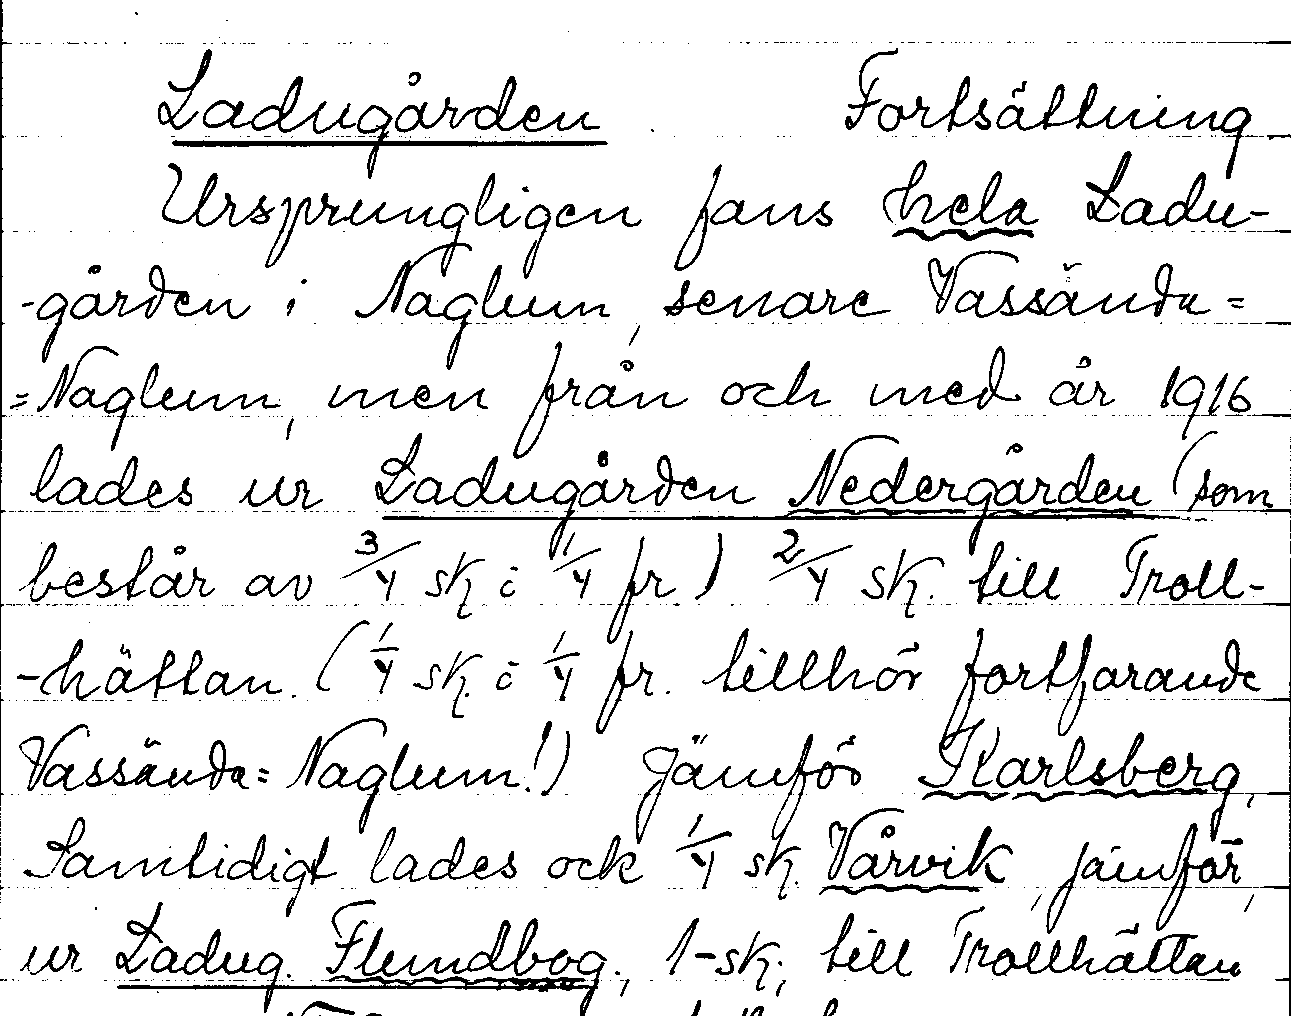 Ladugården Fortsättning
Ursprungligen fans hela Ladu-
-gården i Naglum, senare Vassända=
=Naglum, men från och med år 1916
lades ur Ladugården Nedergården (som
består av 3/4 sk i 1/4 fr.) 2/4 sk. till Troll-
-hättan. (1/4 sk. i 1/4 fr. tillhör fortfarande
Vassända=Naglum!) Jämför Karlsberg,
Samtidigt lades ock 1/4 sk. Vårvik, jämför,
ur Ladug. Flundbog, 1-sk; till Trollhättan